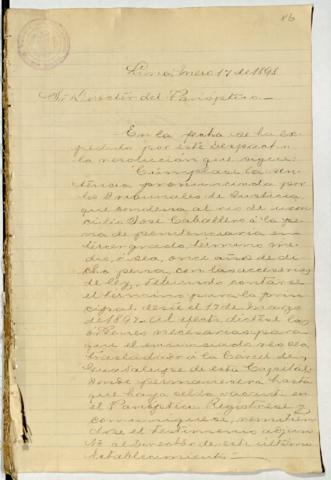 86
Lima, Enero 17 de 1898
Sr. Director del Panóptico.—
En la fecha se ha ex
pedido por este Despacho
la resolución que sigue:
"Cúmplase la sen
tencia pronunciada por
los Tribunales de Justicia
que condena al reo de
José Caballero á la pe
na de penitenciaría en
tercer grado, término me
dio, ó sea, once años de di
cha pena, con las accesorias
de ley, debiendo contarse
el término para la prin
cipal desde el 17 de Marzo
de 1897. Al efecto dictese las
órdenes necesarias para
que el enunciado reo sea
trasladado á la Carcel de
Guadalupe de esta Capital
donde permanecerá hasta
que haya celda vacante en
el Panóptico. Regístrese y
comuníquese, remitién
dose el testimonio adjun
to al Director de este último
establecimiento.—